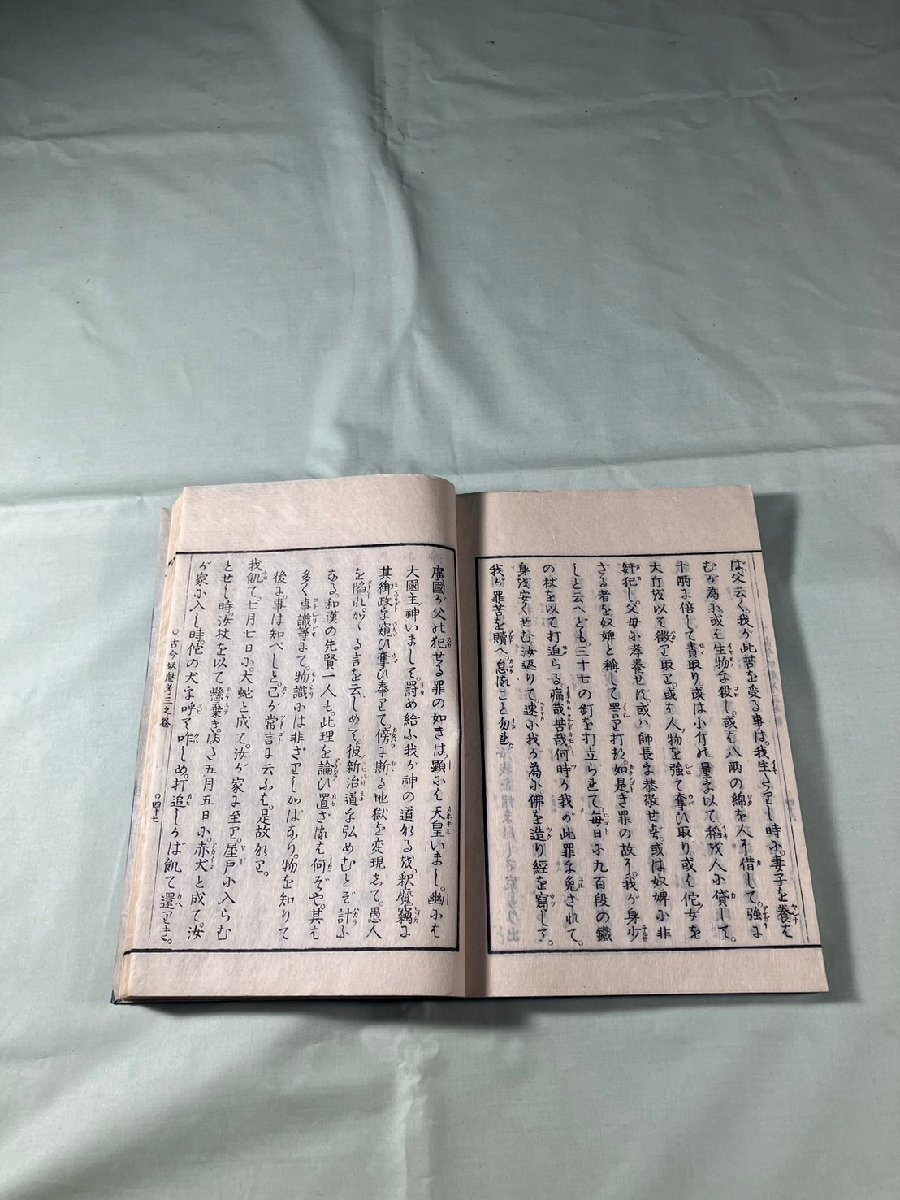 ば。父云く。我が此苦を受る事は。我生てありし時に。妻子を養は
むが為に。或は生物を殺し。或は八両の綿を人に借して。強に
十両に倍して責取り。或は小斤の量を以て稲を人に貸して。
大斤を以て徴り取り。或は人物を強て奪ひ取り。或は佗女を
奸犯し。父母に孝養せず。或は師長を恭敬せず。或は奴婢に非
ざる者を奴婢と称して罵り打ち。如是き罪の故に。我が身少
しと云へども。三十七の釘を打立られて毎日に九百段の鐵
の杖を以て打迫らる。痛哉苦哉。何時か我が此罪を免されて。
身を安くせむ。汝還りて速に我が為に佛を造り経を寫して。
我が罪苦を贖へ。怠ること勿れ。
廣國が父の犯せる罪の如きは。顕には天皇いまし。幽には
大國主神いまして。罰め給ふ我が神の道なるを。釋魔竊に
其御政を窺ひ奪ひ奉て。傍に斯る地獄を変現して。愚人
を陥れ。かゝる言を云しめて。彼新治道を弘めむとぞ計ふ
なる。和漢の先賢一人も。此理を論ひ置ざるは何ぞや。其は
多く事識等まで。物識には非ざりしかばなり。物を知りて
後に事は知べしと。己が常言に云ふは。是故なり。
我飢て。七月七日に。大蛇と成て。汝が家に至り。屋戸に入らむ
とせし時。汝杖を以て懸棄き。后五月五日に。赤犬と成て。汝
が家に入りし時。佗の犬を呼て咋しめ。打追しかば飢て還りき。
○古今妖魅考二之巻 ○四十二